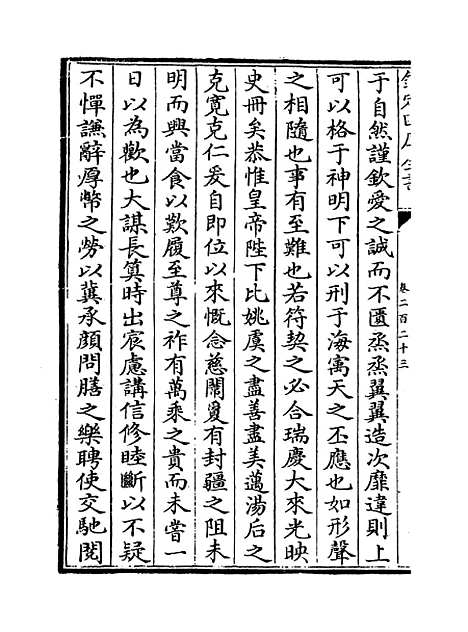 欽定四庫全書
卷二百二十三
于自然謹欽愛之誠而不匱烝烝翼翼造次靡違則上
可以格于神明下可以刑于海寓天之丕應也如形聲
之相隨也事有至難也若符契之必合瑞慶大來光映
史冊矣恭惟皇帝陛下比姚虞之盡善盡美邁湯后之
克寛克仁爰自即位以來慨念慈闈夐有封疆之阻未
明而興當食以歎履至尊之祚有萬乘之貴而未嘗一
日以為歡也大謀長算時出宸慮講信修睦斷以不疑
不憚謙辭厚幣之勞以冀承顔問膳之樂聘使交馳閱